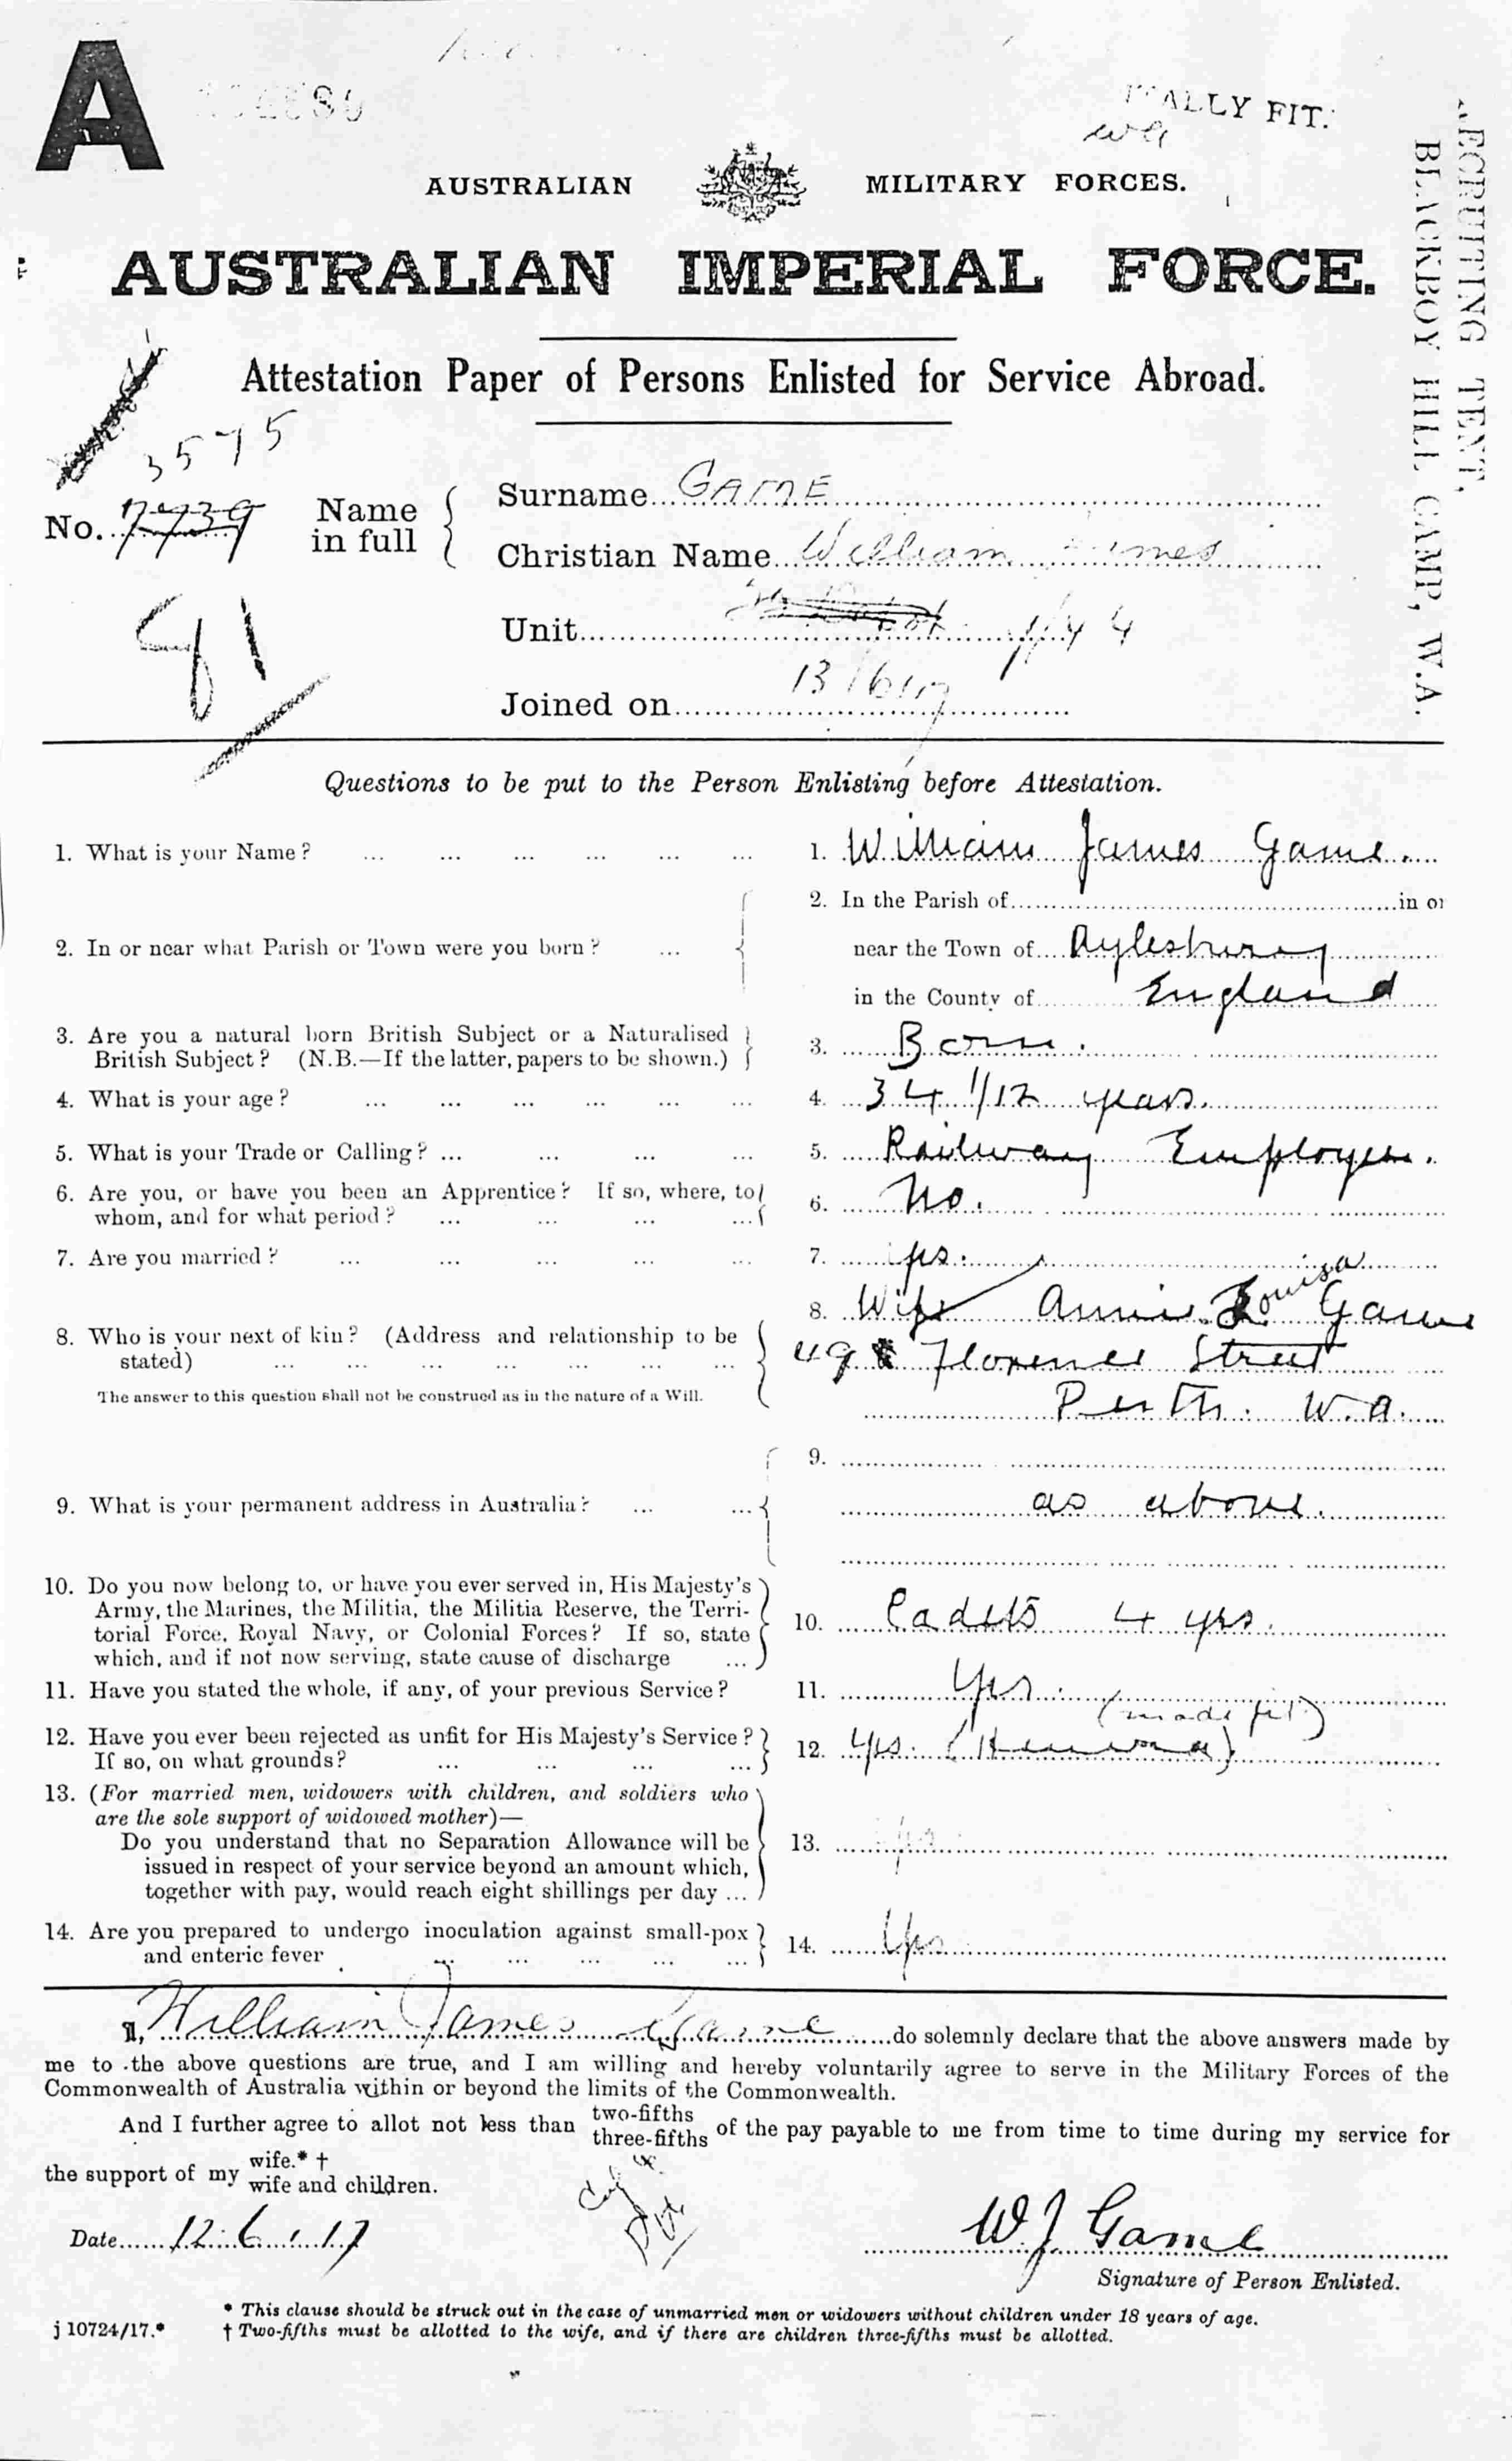 A
ALLY FIT.
AUSTRALIAN MILITARY FORCES.
AUSTRALIAN IMPERIAL FORCE.
RECRUITING TENT,
BLACKBOY HILL CAMP, W.A.
Attestation Paper of Persons Enlisted for Service Abroad.
3575
No. 7739
Name in full
Surname GAME
Christian Name William James
Unit
Joined on 13/6/17
81
Questions to be put to the Person Enlisting before Attestation.
1. What is your Name? ... ... ... ... ... ... 1. William James Game
2. In or near what Parish or Town were you born? ... 2. In the Parish of in or
near the Town of Aylesbury
in the County of England
3. Are you a natural born British Subject or a Naturalised
British Subject? (N.B.—If the latter, papers to be shown.) 3. Born.
4. What is your age? ... ... ... ... ... ... 4. 34 1/12 years.
5. What is your Trade or Calling? ... ... ... ... 5. Railway Employee.
6. Are you, or have you been an Apprentice? If so, where, to
whom, and for what period? ... ... ... ... 6. No.
7. Are you married? ... ... ... ... ... 7. yes.
8. Who is your next of kin? (Address and relationship to be
stated) ... ... ... ... ... ... ...
The answer to this question shall not be construed as in the nature of a Will.
8. Wife Annie Louisa Game
49 Florence Street
Perth. W.A.
9. What is your permanent address in Australia? ... ... 9.
as above.
10. Do you now belong to, or have you ever served in, His Majesty's
Army, the Marines, the Militia, the Militia Reserve, the Terri-
torial Force, Royal Navy, or Colonial Forces? If so, state
which, and if not now serving, state cause of discharge ...
10. Cadets 4 yrs.
11. Have you stated the whole, if any, of your previous Service? 11. Yes.
12. Have you ever been rejected as unfit for His Majesty's Service?
If so, on what grounds? ... ... ... ...
(made fit)
12. Yes.
13. (For married men, widowers with children, and soldiers who
are the sole support of widowed mother)—
Do you understand that no Separation Allowance will be
issued in respect of your service beyond an amount which,
together with pay, would reach eight shillings per day ...
13. Yes
14. Are you prepared to undergo inoculation against small-pox
and enteric fever ... ... ... ... ...
14. Yes
I, William James Game do solemnly declare that the above answers made by
me to the above questions are true, and I am willing and hereby voluntarily agree to serve in the Military Forces of the
Commonwealth of Australia within or beyond the limits of the Commonwealth.
And I further agree to allot not less than two-fifths three-fifths of the pay payable to me from time to time during my service for
the support of my wife.* † wife and children.
Date 12.6.17
W J Game
Signature of Person Enlisted.
* This clause should be struck out in the case of unmarried men or widowers without children under 18 years of age.
j 10724/17.* † Two-fifths must be allotted to the wife, and if there are children three-fifths must be allotted.